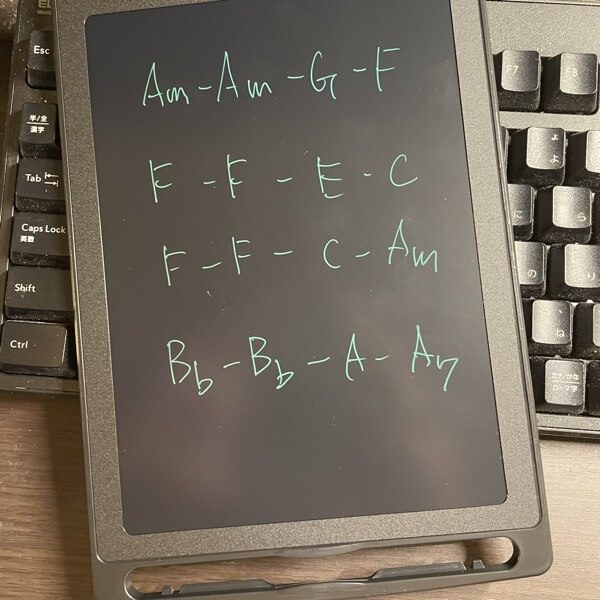 Am - Am - G - F
F - F - E - C
F - F - C - Am
Bb - Bb - A - A7
Esc
半/全
漢字
Tab
Caps Lock
英数
Shift
Ctrl
F7
F8
ょ
よ
に
ら
の
り
ね
カナ/かな
ローマ字